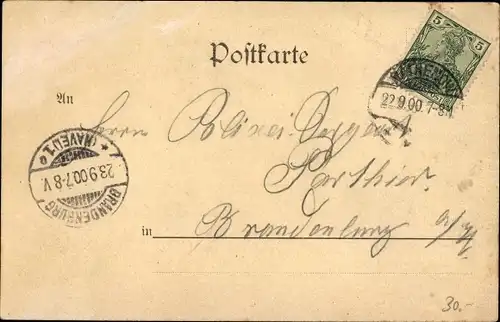 5 5
Postkarte
RATHENOW
22.9.00.7-8
An
Herrn Polizei-Sergeant
Parthier
(HAVEL) 1
23.9.00.7-8 V.
BRANDENBURG
in Brandenburg a/H
30.-